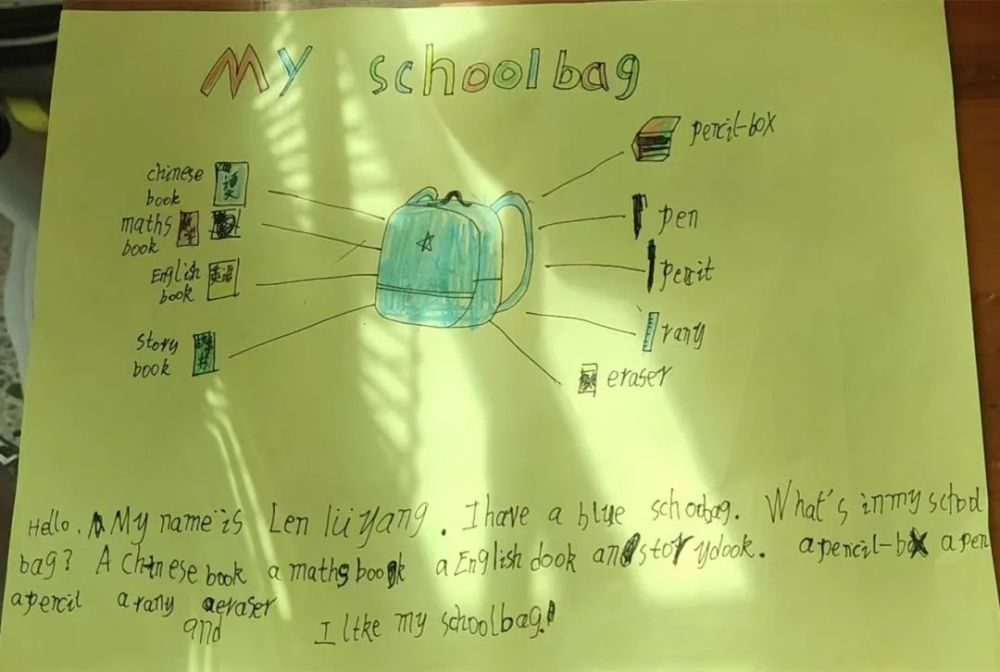 My schoolbag
chinese
book
语文
maths
book
English
book
英语
story
book
pencil-box
pen
percit
rany
eraser
Hello. My name is Len lüyang. I have a blue schoolbag. What's in my school
bag? A Chinese book a maths book a English dook and storydook. a pencil-box a pen
a percil a rany a eraser
and I like my schoolbag!